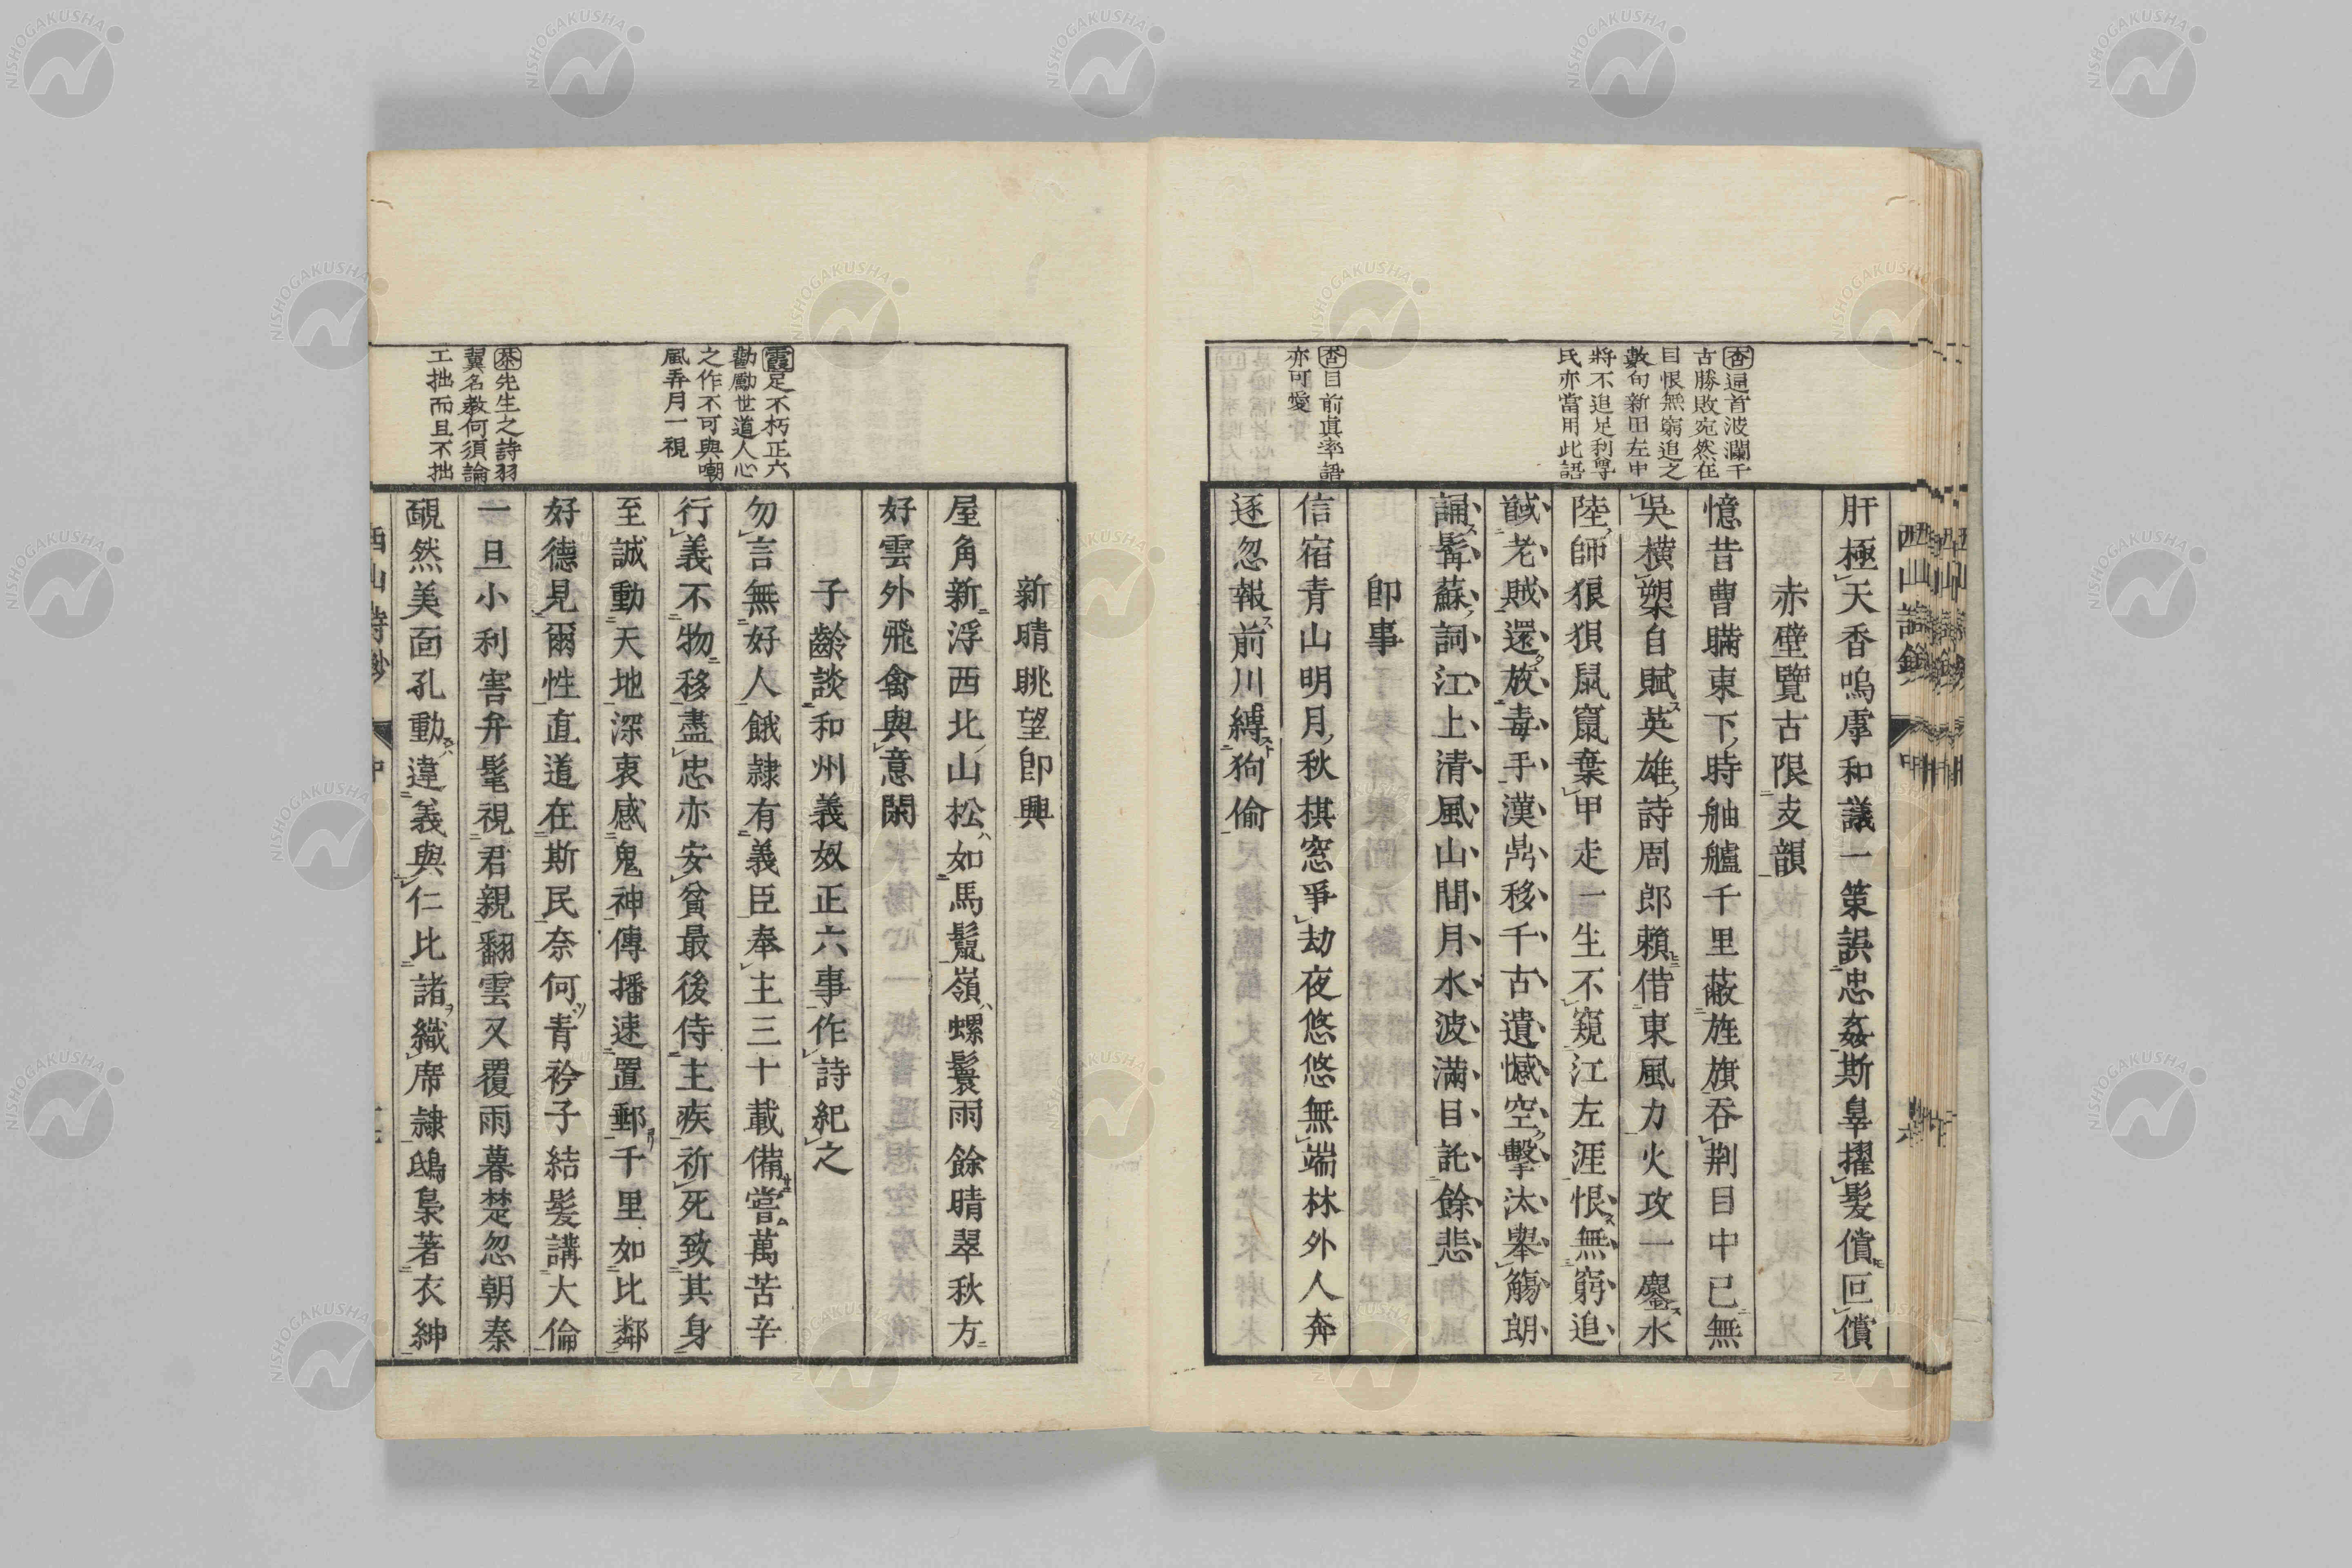 杳逼首波瀾千
古勝敗宛然在
目恨無窮追之
數句新田左中
將不追足利尊
氏亦當用此語
杳目前眞率語
亦可愛
肝極天香嗚虖和議一策誤忠姦斯辠擢髮償叵償
赤壁覽古限支韻
憶昔曹瞞東下時舳艫千里蔽旌旗吞荆目中已無
吳橫槊自賦英雄詩周郎賴借東風力火攻一鏖水
陸師狼狽鼠竄棄甲走一生不窺江左涯恨無窮追
馘老賊還放毒手漢鼎移千古遺憾空擊汰舉觴朗
誦髯蘇詞江上清風山間月水波滿目託餘悲
卽事
信宿青山明月秋棋窓爭劫夜悠悠無端林外人奔
逐忽報前川縛狗偷
霞足不朽正六
勸勵世道人心
之作不可與嘲
風弄月一視
茶先生之詩羽
翼名教何須論
工拙而且不拙
新晴眺望卽興
屋角新浮西北山松如馬鬣嶺螺鬟雨餘晴翠秋方
好雲外飛禽與意閑
子齡談和州義奴正六事作詩紀之
勿言無好人餓隷有義臣奉主三十載備嘗萬苦辛
行義不物移盡忠亦安貧最後侍主疾祈死致其身
至誠動天地深衷感鬼神傳播速置郵千里如比鄰
好德見爾性直道在斯民奈何青衿子結髮講大倫
一旦小利害弁髦視君親翻雲又覆雨暮楚忽朝秦
覼然美面孔動違義與仁比諸織席隷鴟梟著衣紳
西山詩鈔 中